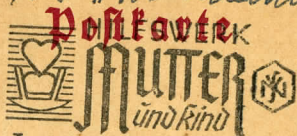 Postkarte
HILFSWERK
MUTTER
und Kind